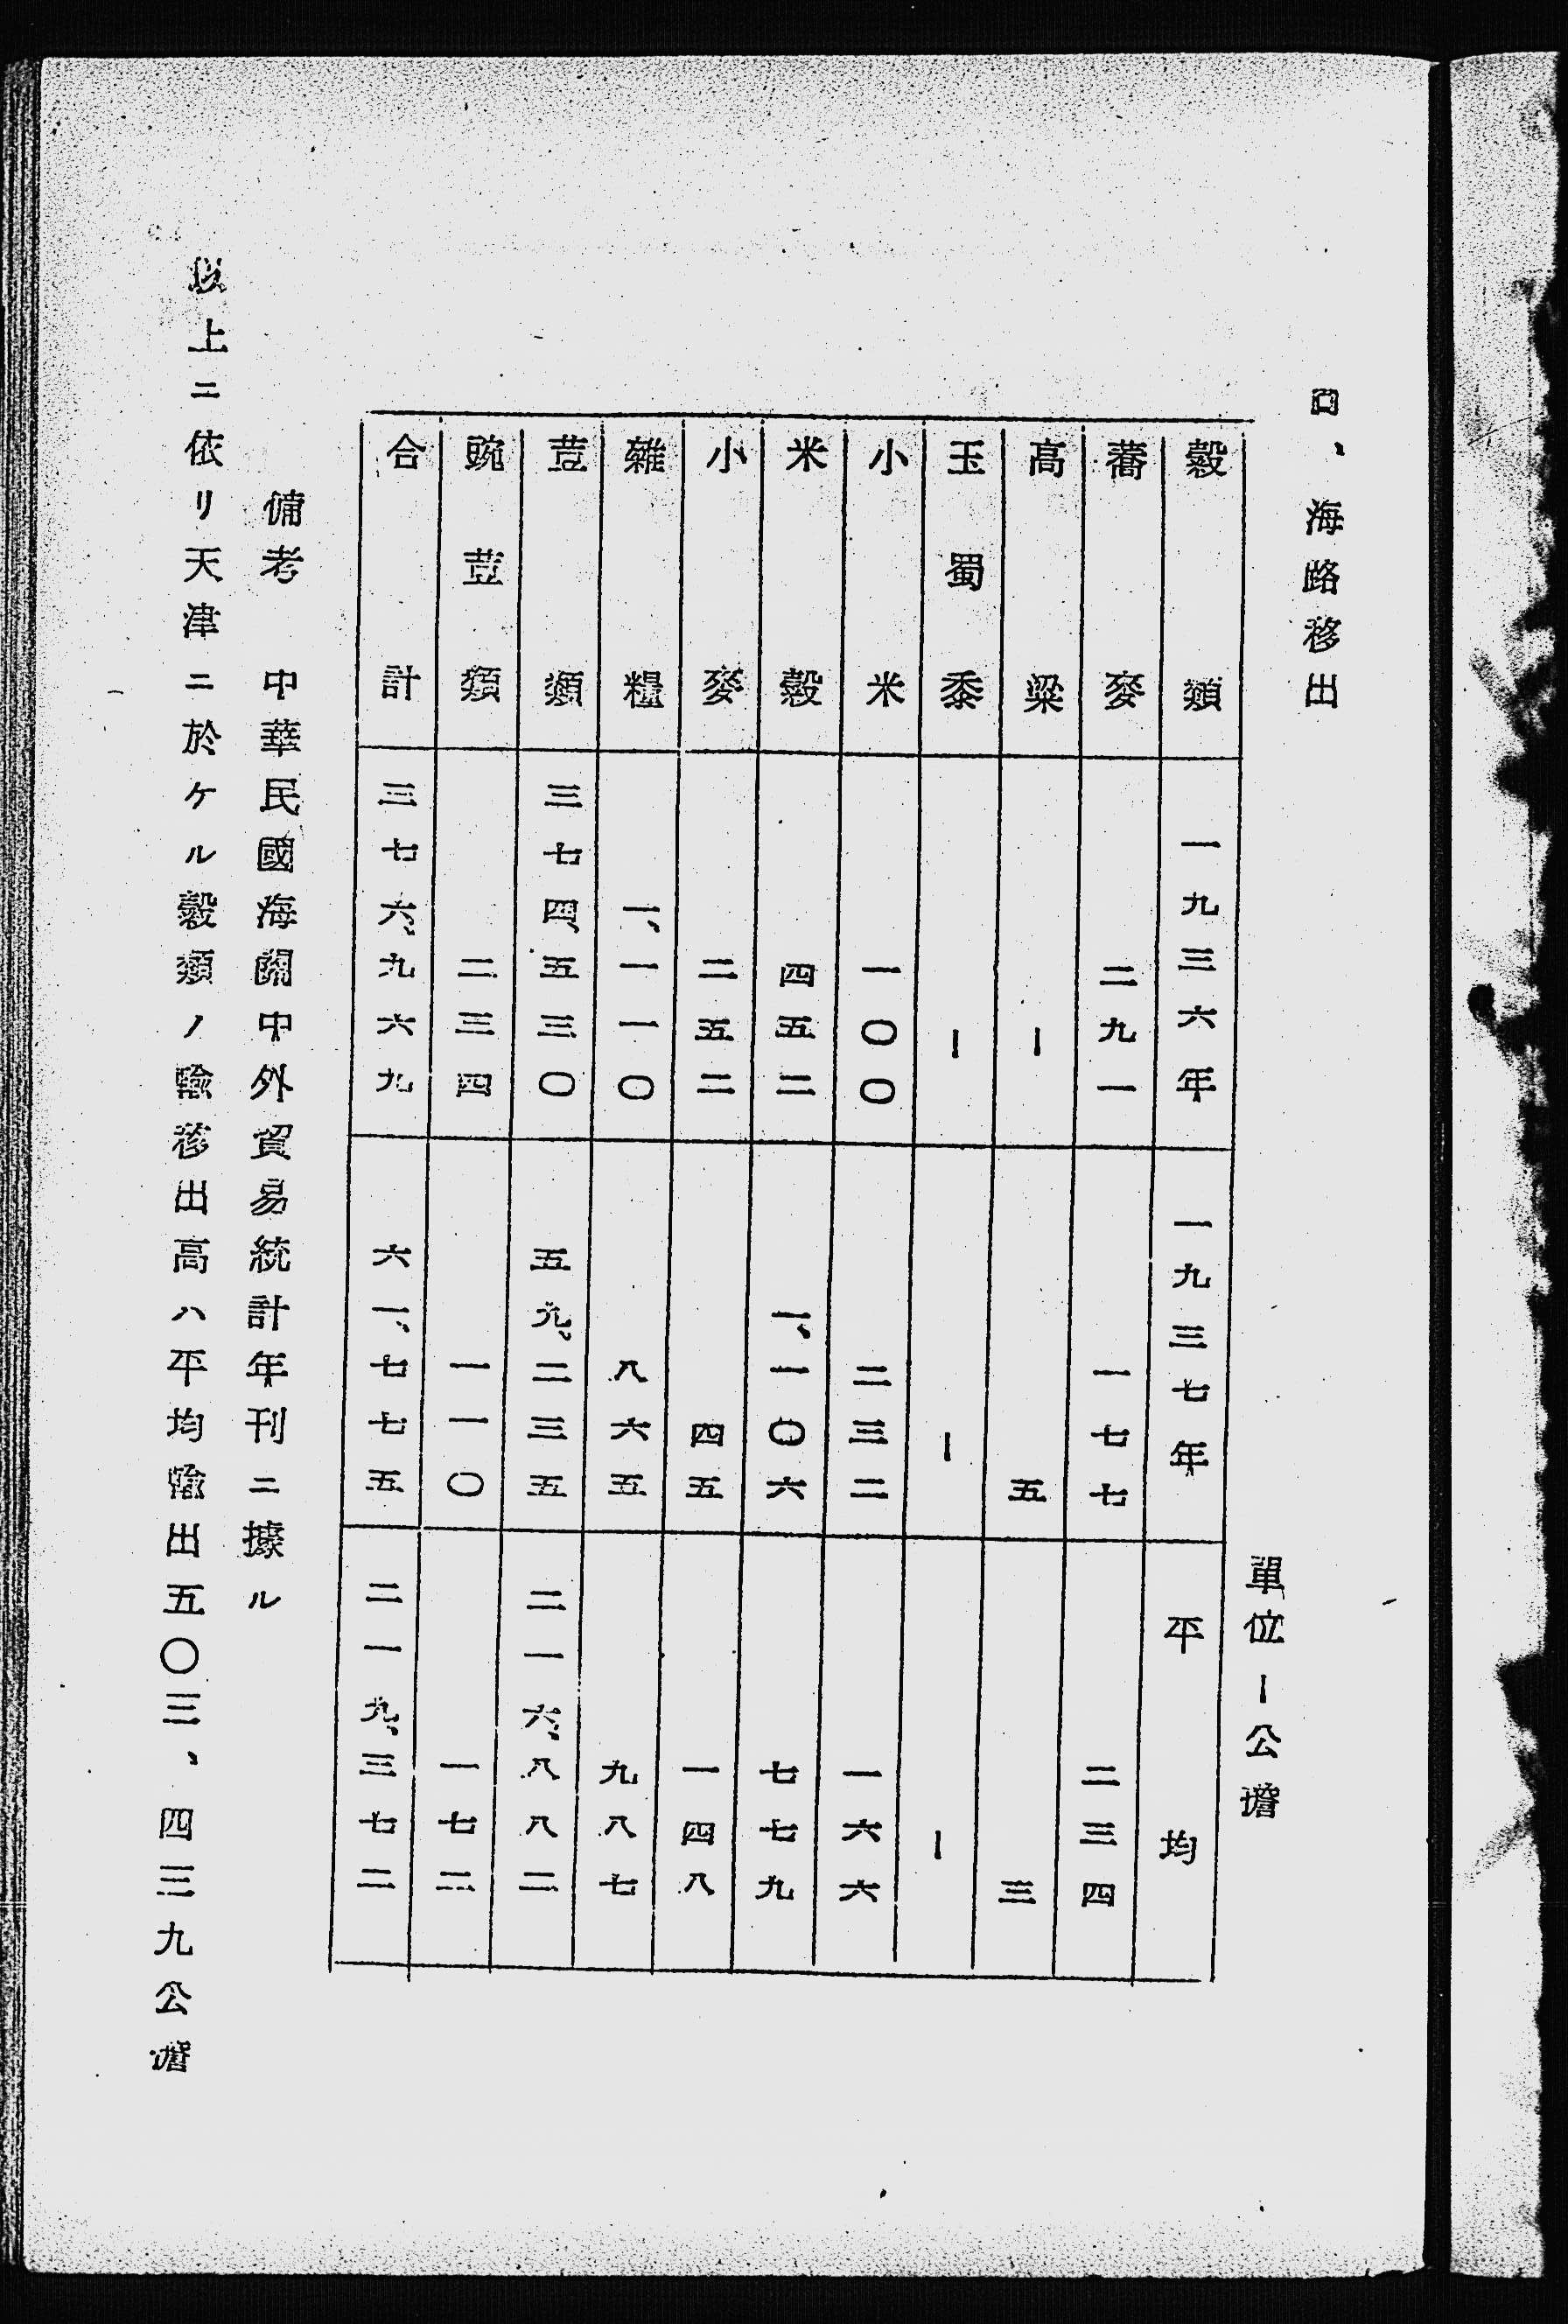 ロ、海路移出
單位ー公擔
穀類 一九三六年 一九三七年 平均
蕎麥 二九一 一七七 二三四
高粱 ー 五 三
玉蜀黍 ー ー ー
小米 一〇〇 二三二 一六六
米穀 四五二 一、一〇六 七七九
小麥 二五二 四五 一四八
雜糧 一、一一〇 八六五 九八七
荳類 三七四、五三〇 五九、二三五 二一六、八八二
豌荳類 二三四 一一〇 一七二
合計 三七六、九六九 六一、七七五 二一九、三七二
備考 中華民國海關中外貿易統計年刊ニ據ル
以上ニ依リ天津ニ於ケル穀類ノ輸移出高ハ平均輸出五〇三、四三九公擔